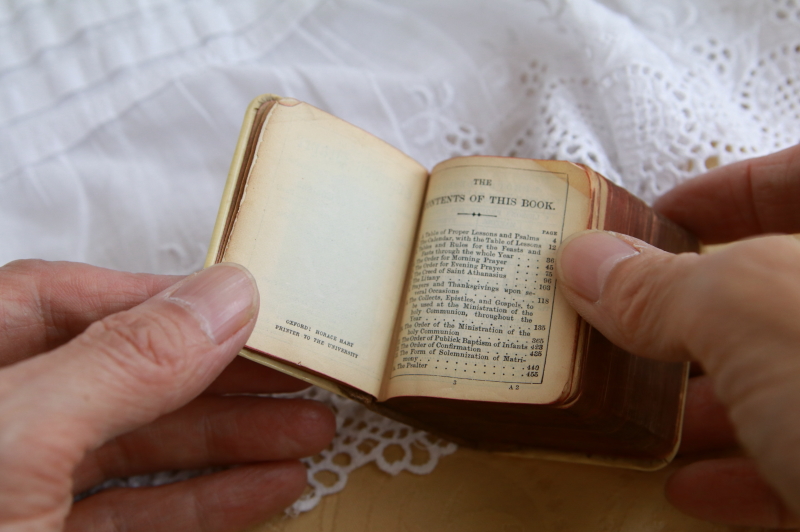 OXFORD: HORACE HART
PRINTER TO THE UNIVERSITY
THE
CONTENTS OF THIS BOOK.
PAGE
Table of Proper Lessons and Psalms 4
Calendar, with the Table of Lessons 12
and Rules for the Feasts and
Fasts through the whole Year
The Order for Morning Prayer 36
The Order for Evening Prayer 45
The Creed of Saint Athanasius 75
Litany 96
Prayers and Thanksgivings upon se-
veral Occasions 103
The Collects, Epistles, and Gospels, to
be used at the Ministration of the
Holy Communion, throughout the
Year 118
The Order of the Ministration of the
Holy Communion 135
The Order of Publick Baptism of Infants
The Order of Confirmation
The Form of Solemnization of Matri-
mony 440
The Psalter 455
3 A 2